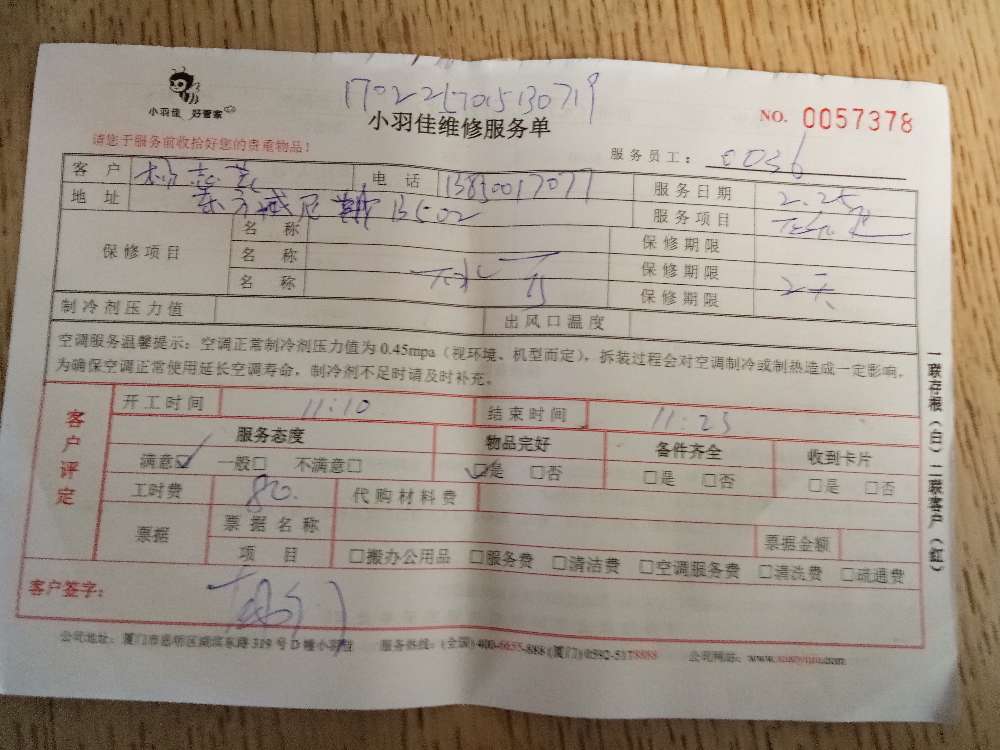 1702257015130719
小羽佳 好管家
小羽佳维修服务单
NO. 0057378
请您于服务前收拾好您的贵重物品!
服务员工: 0036
客户 电话 13850017077 服务日期 2.25
地址 东方威尼 B502 服务项目
保修项目 名称 保修期限
名称 保修期限
名称 保修期限 2天
制冷剂压力值 出风口温度
空调服务温馨提示:空调正常制冷剂压力值为0.45mpa(视环境、机型而定),拆装过程会对空调制冷或制热造成一定影响,
为确保空调正常使用延长空调寿命,制冷剂不足时请及时补充。
客户评定
开工时间 11:10 结束时间 11:23
服务态度 物品完好 备件齐全 收到卡片
满意☑ 一般□ 不满意□ ☑是 □否 □是 □否 □是 □否
工时费 80. 代购材料费
票据 票据名称 票据金额
项目 □搬办公用品 □服务费 □清洁费 □空调服务费 □清洗费 □疏通费
客户签字:
公司地址:厦门市思明区湖滨东路319号D幢小羽佳 服务热线:(全国)400-6655-888(厦门)0592-5178888 公司网站:
一联存根(白)二联客户(红)